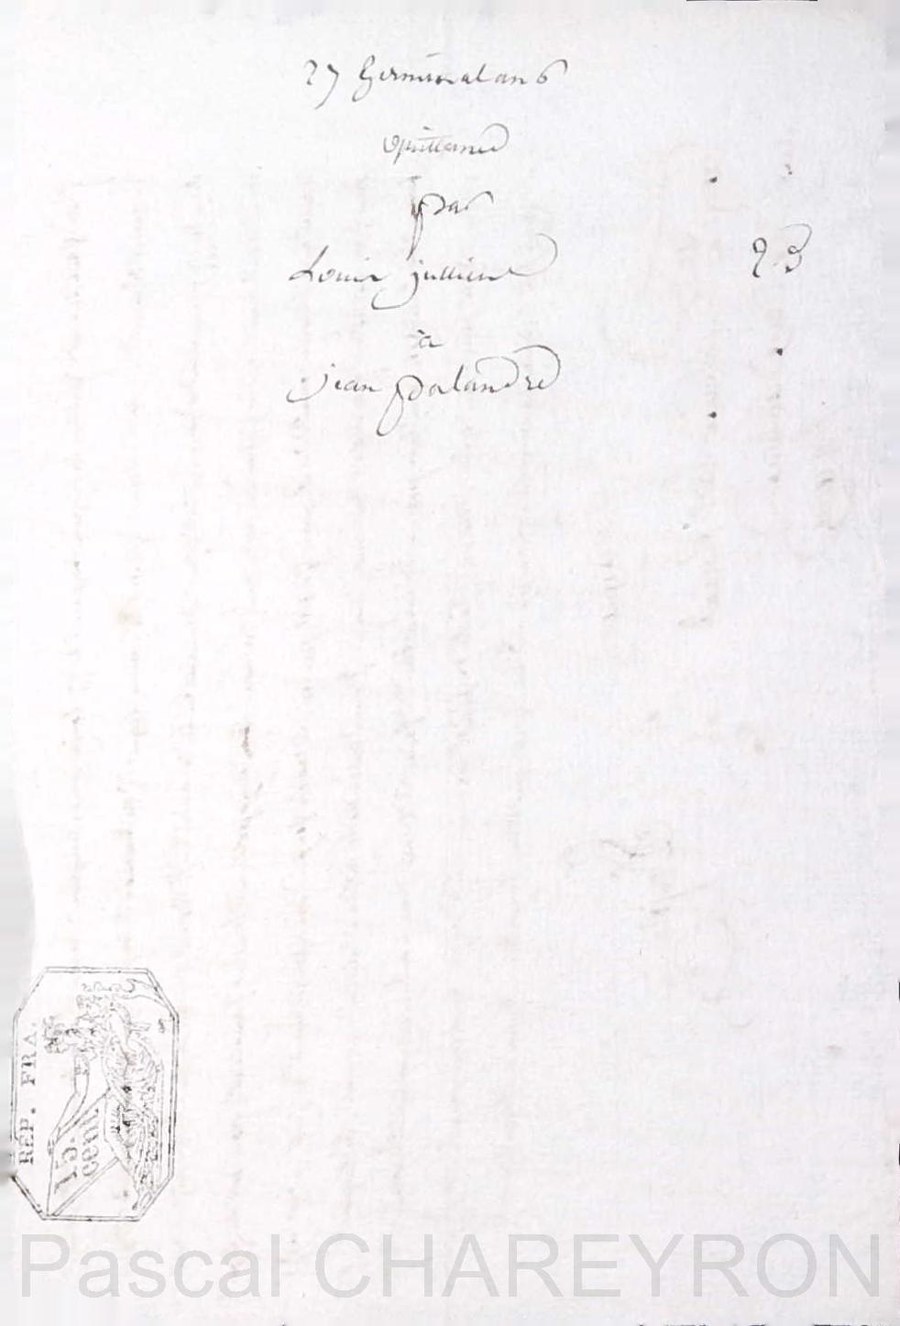 27 Germinal an 6
Quittance
par
Louis jullien
23
à
jean palandre
REP. FRA.
Pascal CHAREYRON